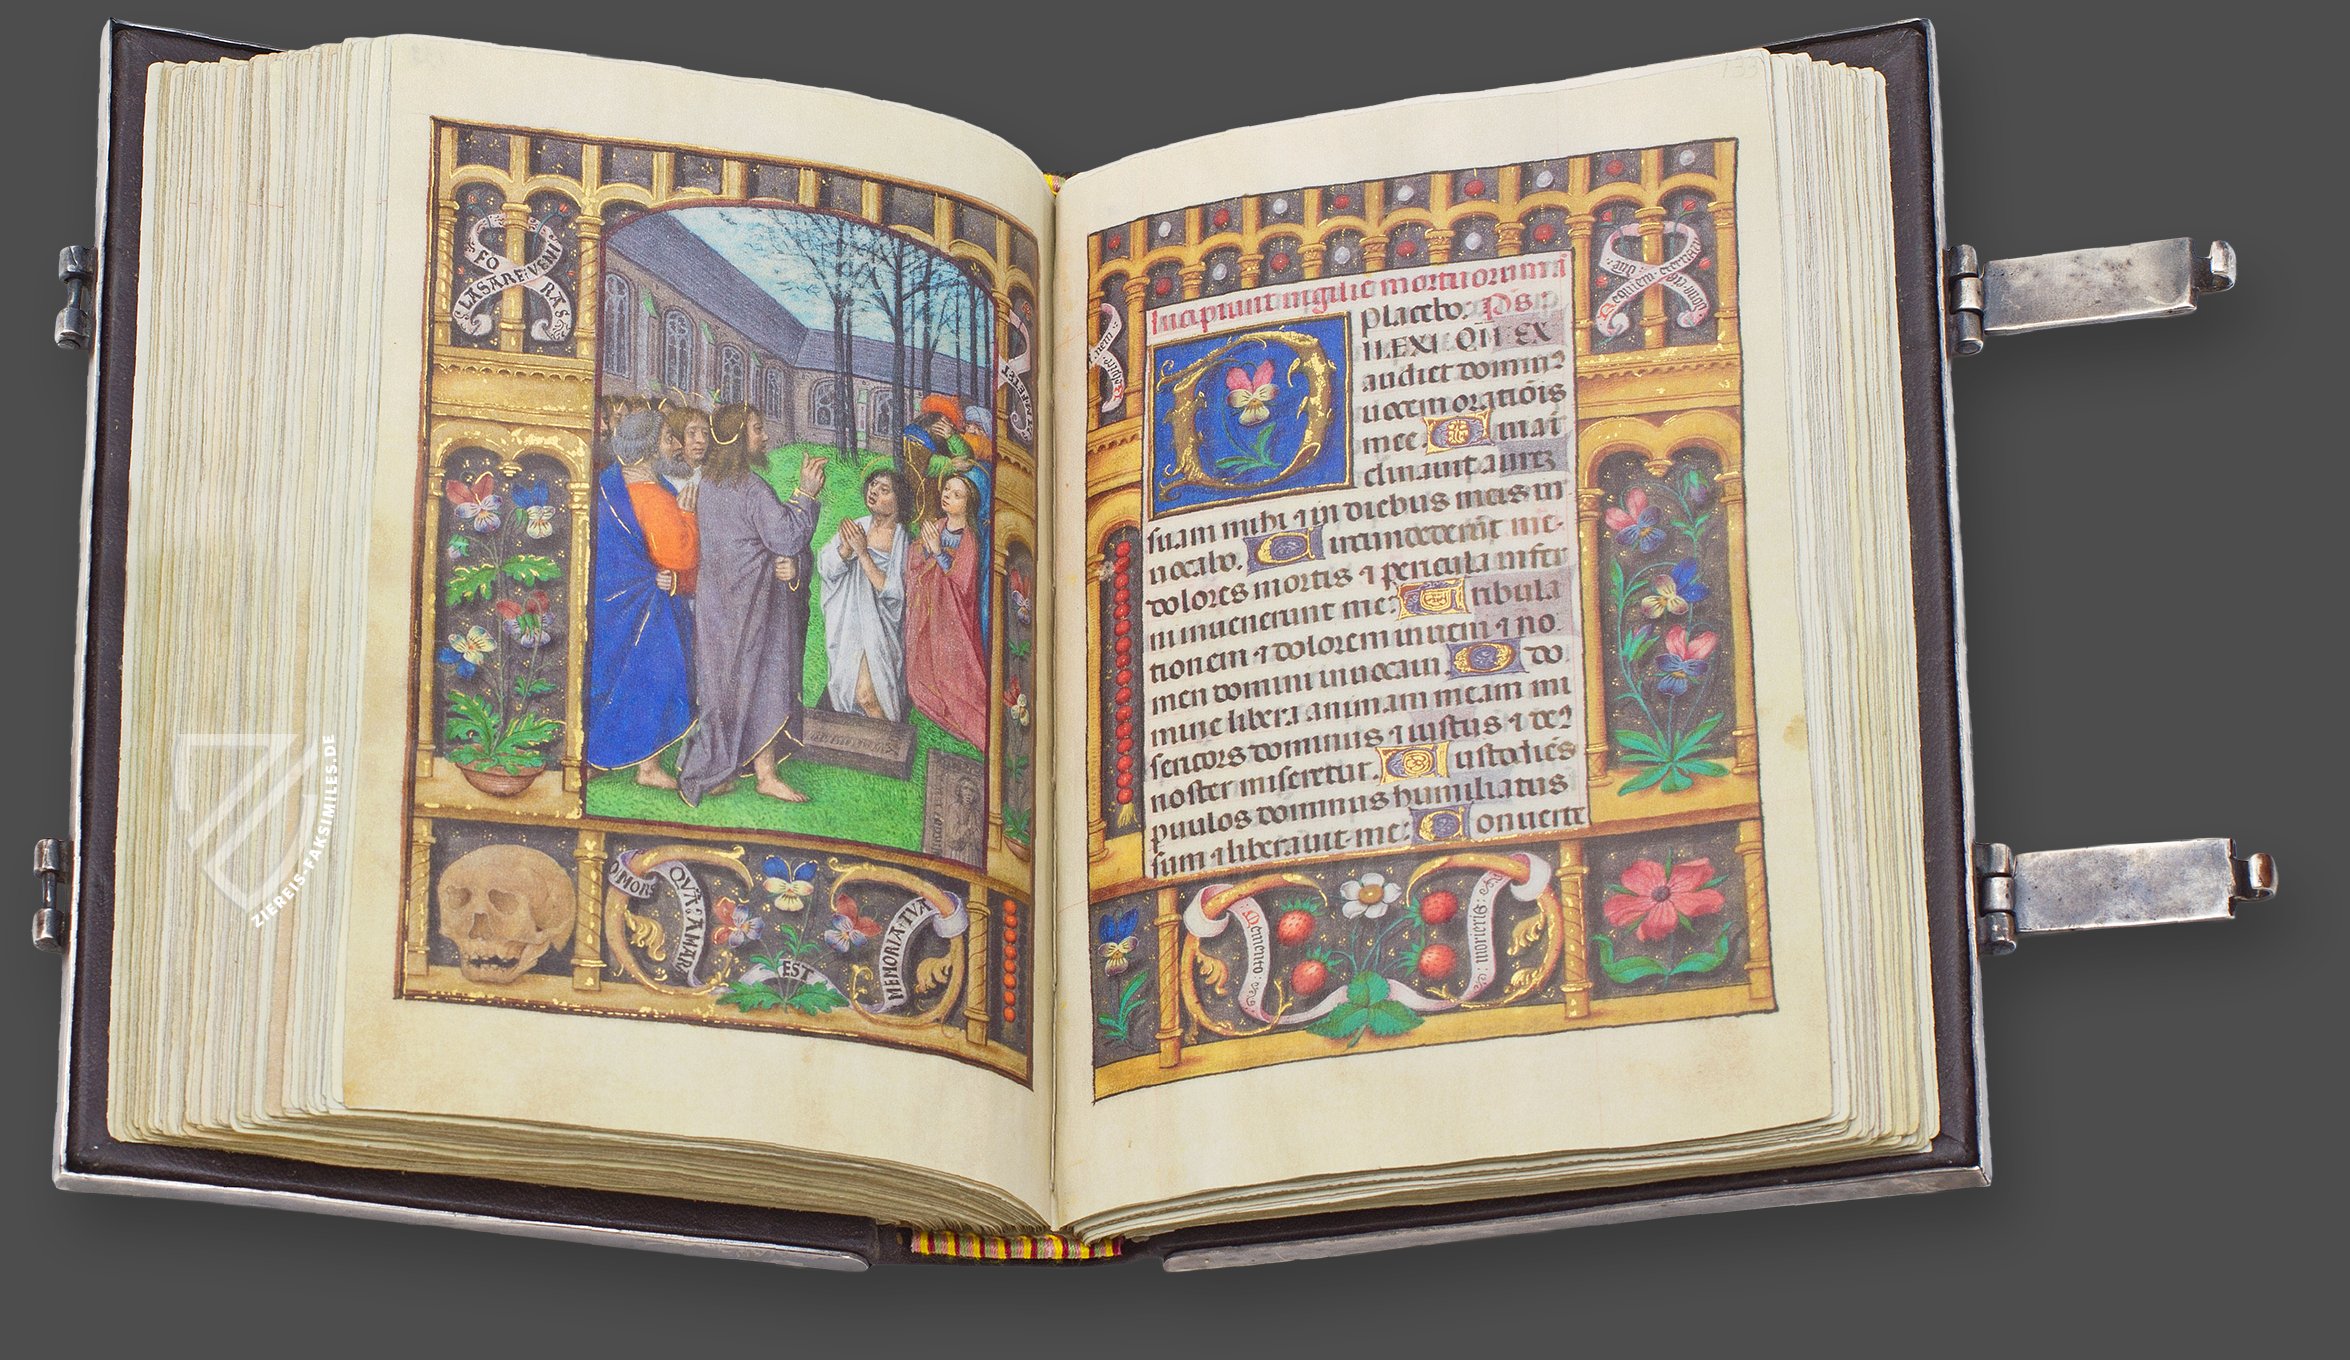 LASARE VENI
FORAS
O MORS
QVÃ AMARA
EST
MEMORIA TVA
Incipiunt vigilie mortuorum añ
Placebo. Ps.
ILEXI QM EX
audiet dominꝰ
uocem orationis
mee. Quia
clinauit aurez
suam michi ⁊ in diebus meis in
uocabo. Circumdederūt me
dolores mortis ⁊ pericula infer
ni inuenerunt me: Tribula
tionem ⁊ dolorem inueni ⁊ no
men domini inuocaui. O do
mine libera animam meam mi
sericors dominus ⁊ iustus ⁊ deꝰ
noster miseretur. Custodiēs
paruulos dominus humiliatus
sum ⁊ liberauit me: Conuerte
Requiem eternam
dona
Memento
morieris
133
ZIEREIS-FAKSIMILES.DE